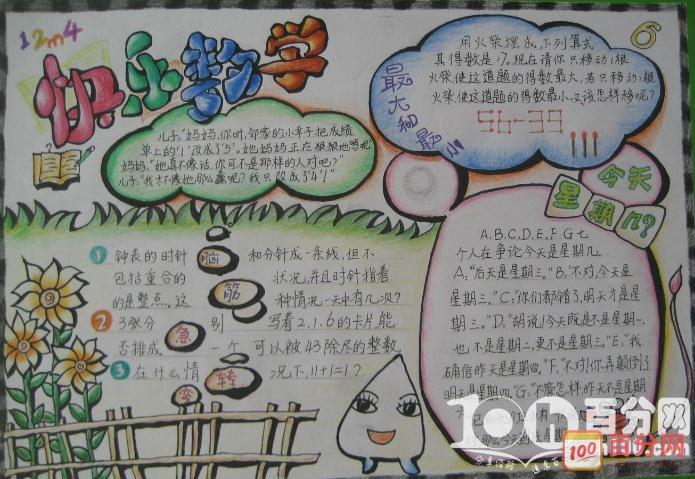 1 2 m 4
快乐数学
儿子:"妈妈,你听,邻家的小幸子把成绩
单上的'1'改成了'5',她妈妈正在狠狠地骂呢
妈妈:"她真不像话,你可不是那样的人对吧?"
儿子:"我才不像她那么蠢呢?我只改成了'4'!"
最大和最小
用火柴摆成下列算式
其得数是17。现在请你只移动1根
火柴使这道题的得数最大,若只移动1根
火柴,使这道题的得数最小,又该怎样移呢?
56-39
6
今天
星期几?
A、B、C、D、E、F、G七
个人在争论今天是星期几
A:"后天是星期三。"B:"不对,今天是
星期三。"C:"你们都错了,明天才是星
期三。"D:"胡说!今天既是不是星期一,
也不是星期二,更不是星期三。"E:"我
确信昨天是星期四。"F:"不对!你弄颠倒了
明天是星期四。"G:"不管怎样,昨天不是星期
脑筋急转弯
1 钟表的时针和分针成一条线,但不
包括重合的状况,并且时针指着
的是整点。这种情况一天中有几次?
2 3张分别写着2.1.6的卡片,能
否排成一个可以被43除尽的整数。
3 在什么情况下,11+1=1?
100百分网
100 百分网